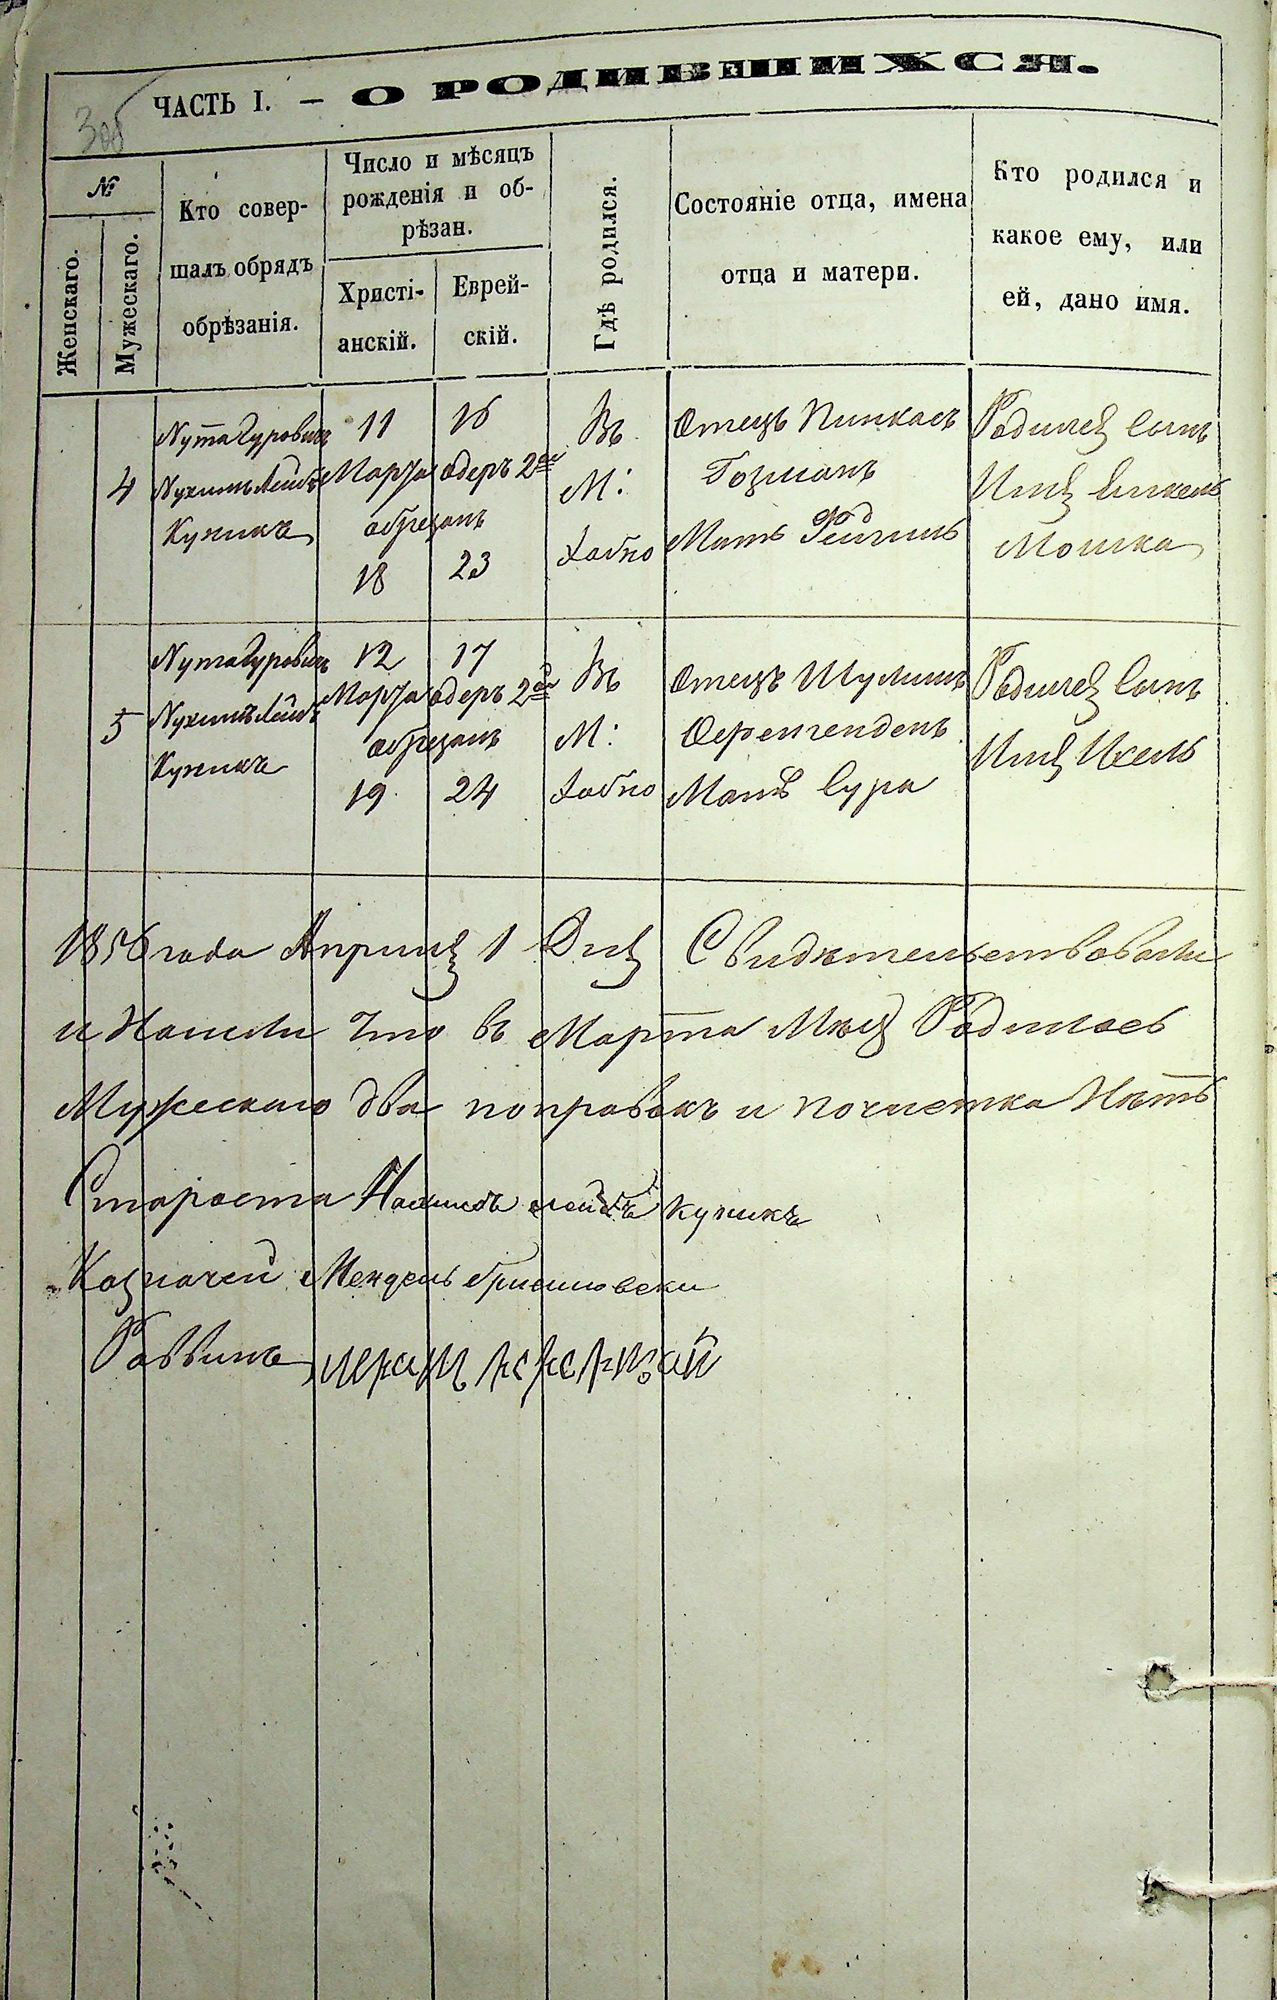 Зоб
ЧАСТЬ I. — О РОДИВШИХСЯ.
№
Женскаго.
Мужескаго.
Кто совер-
шалъ обрядъ
обрѣзанія.
Число и мѣсяцъ
рожденія и об-
рѣзан.
Христі-
анскій.
Еврей-
скій.
Гдѣ родился.
Состояніе отца, имена
отца и матери.
Кто родился и
какое ему, или
ей, дано имя.
4
Нута Гуровичъ
Нухимъ Лейбъ
Куникъ
11
Марта
обрезанъ
18
16
адеръ 2го
23
Въ
М:
Хабно
Отецъ Пинкасъ
Гозманъ
Мать
Родился Сынъ
Имя
Мошка
5
Нута Гуровичъ
Нухимъ Лейбъ
Куникъ
12
Марта
обрезанъ
19
17
адеръ 2го
24
Въ
М:
Хабно
Отецъ Шулимъ
Мать Сура
Родился Сынъ
Имя Ихель
1856 года Априля 1 Дня Свидѣтельствовали
и Нашли что въ Марта Мѣця Родилось
Мужескаго два поправокъ и почистка Нѣтъ
Староста лейбъ куникъ
Казначей Мендель
Раввинъ